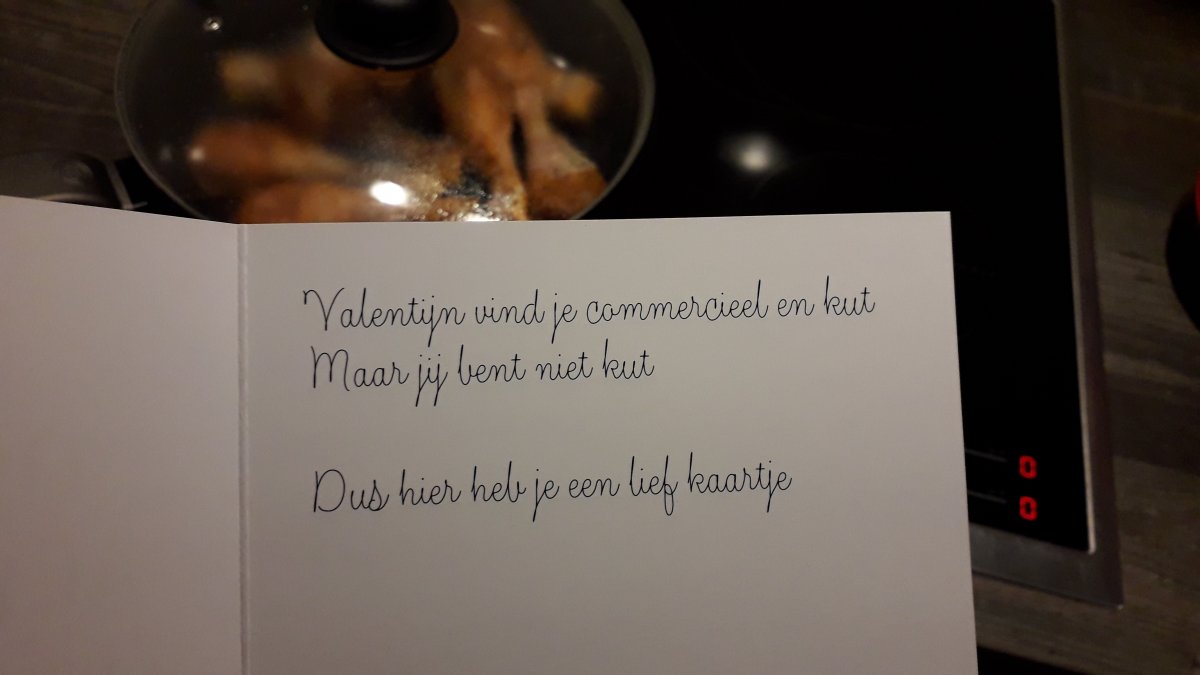 Valentijn vind je commercieel en kut
Maar jij bent niet kut
Dus hier heb je een lief kaartje
0
0